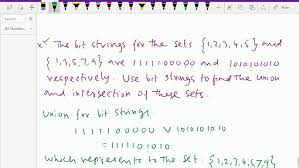 Search
All Number...
x✓ The bit strings for the sets {1,2,3,4,5} and
{1,3,5,7,9} are 1111100000 and 1010101010
respectively. Use bit strings to find the union
and intersection of these sets.
Union for bit strings.
1111100000 ∨ 1010101010
= 1111101010
which represents to the set. {1,2,3,4,5,7,9}